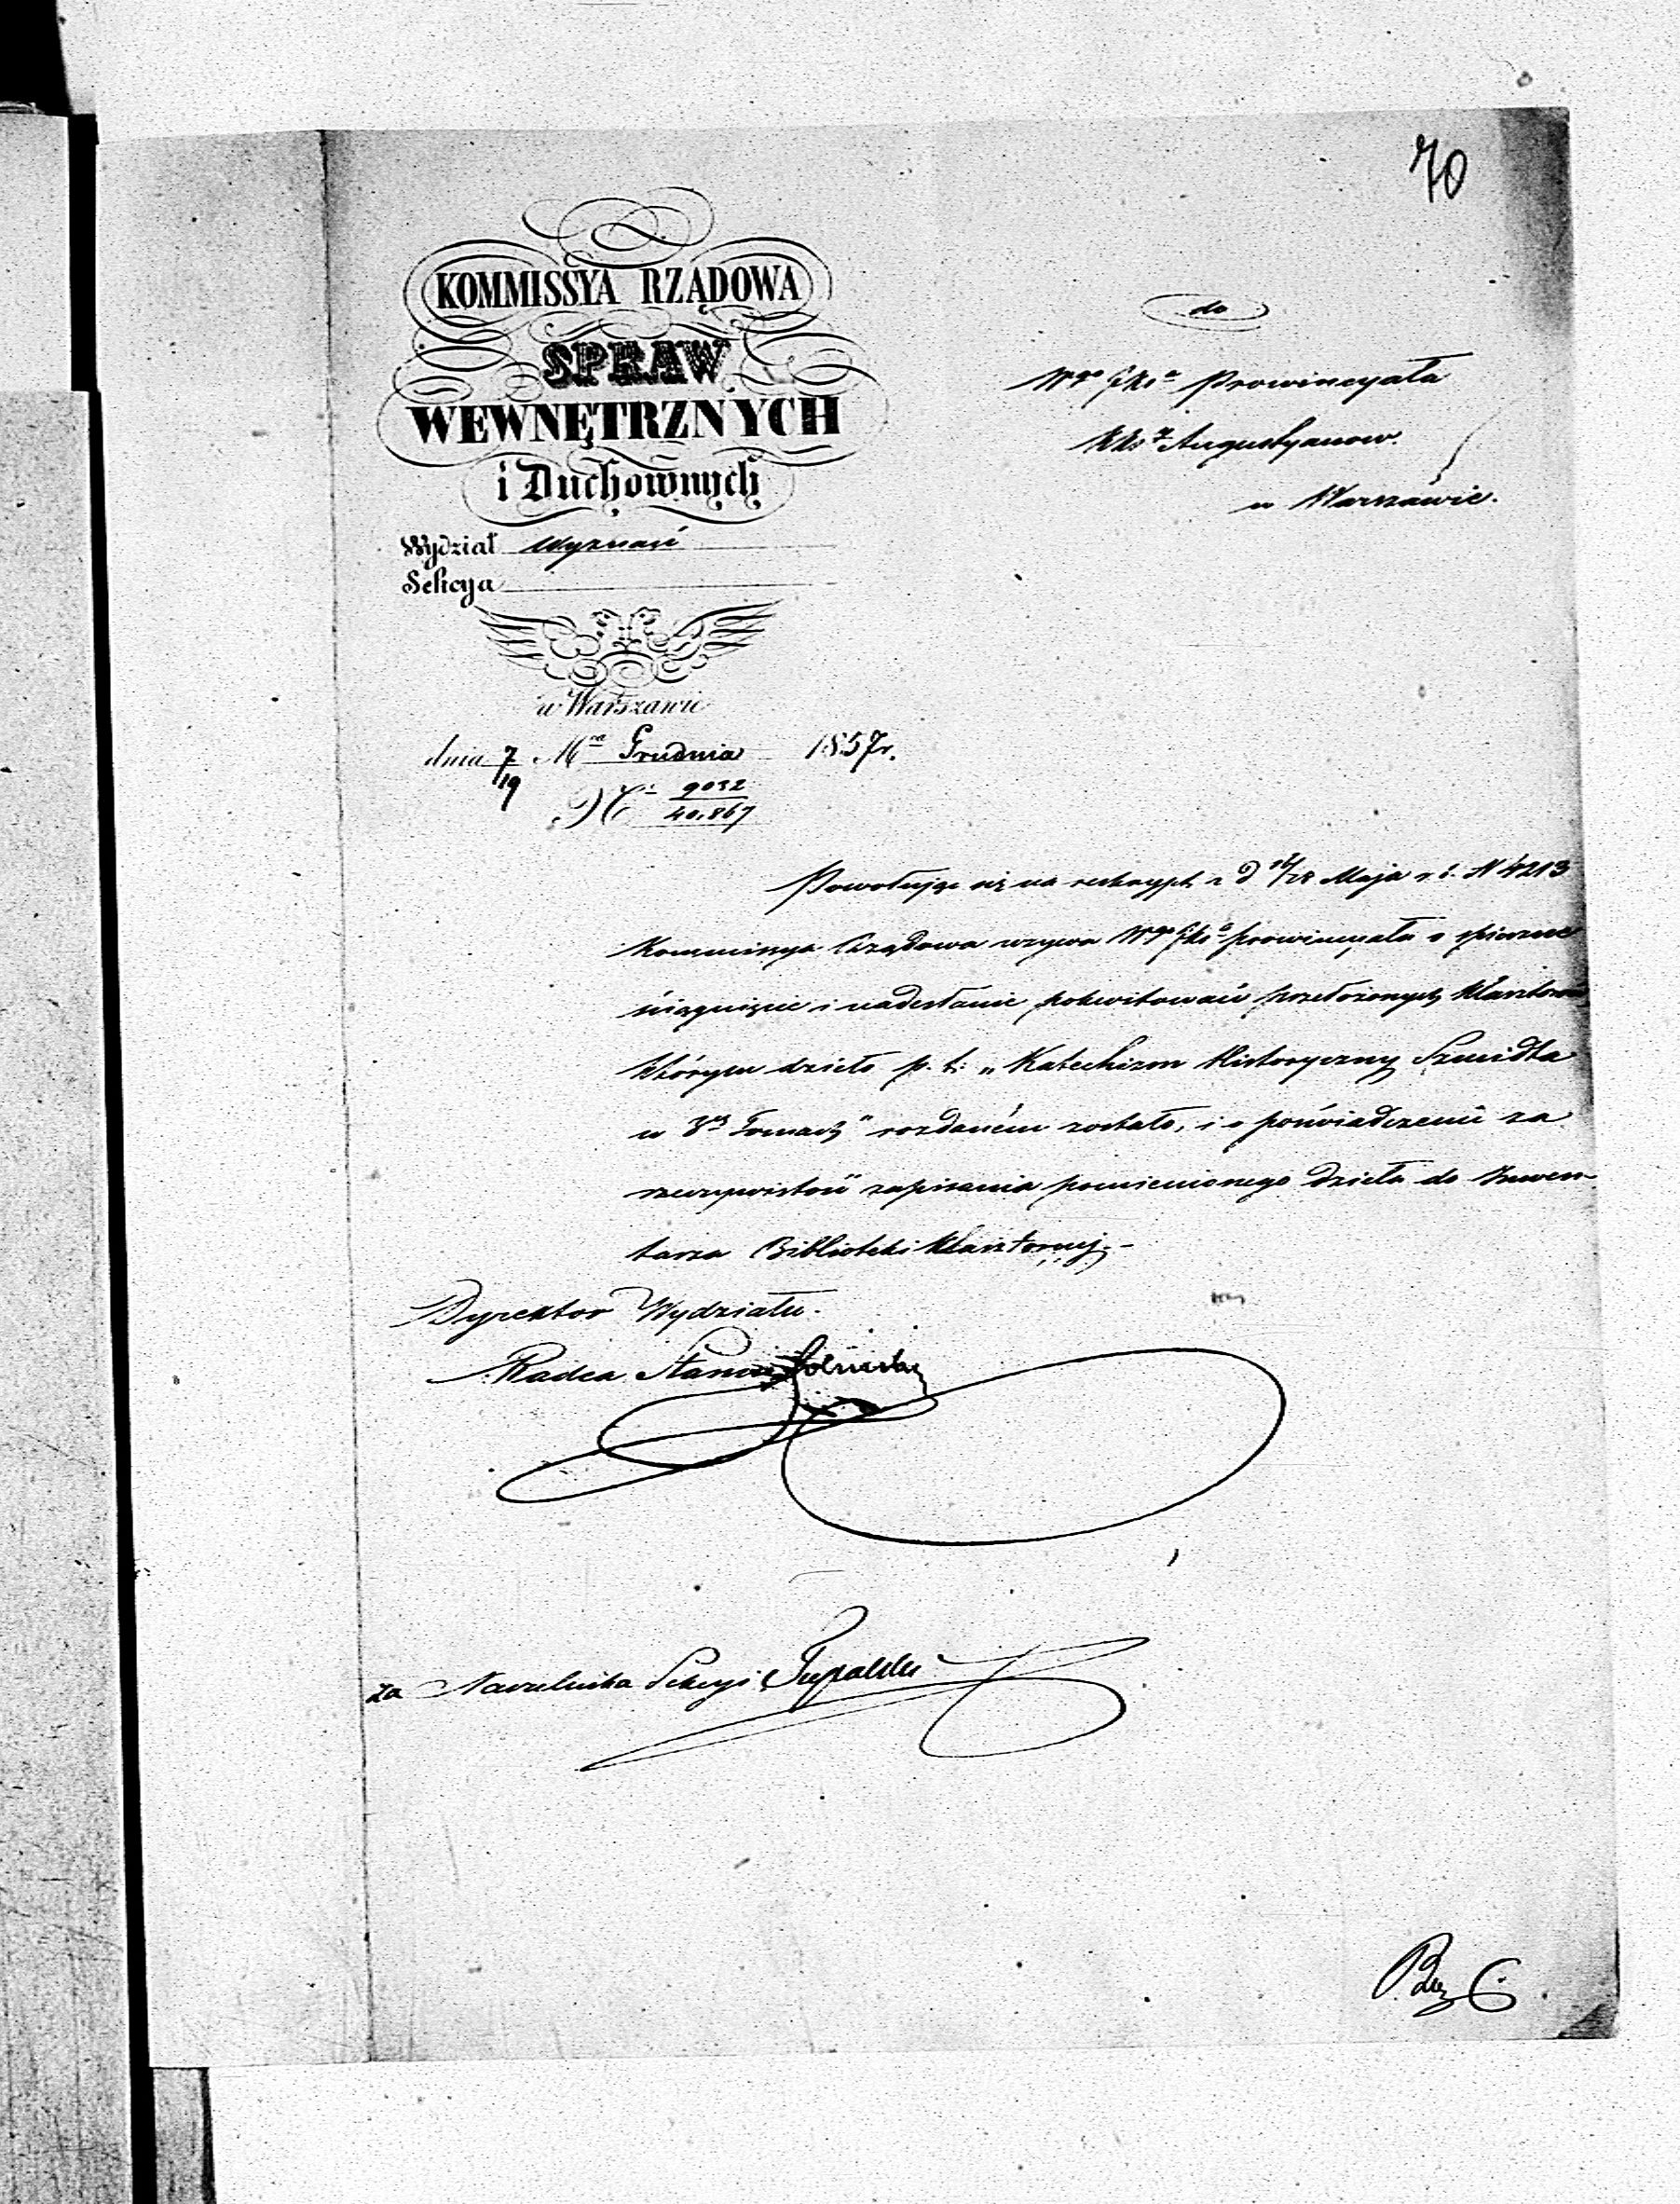 70
KOMMISSYA RZĄDOWA
SPRAW
WEWNĘTRZNYCH
i Duchownych
Wydział Wyznań
Sekcya
w Warszawie
dnia 7/19 Mca Grudnia 1857 r.
N 9032/40,867
do
Wgo JXsa Prowincyała
XXży Augustyanow
w Warszawie.
Powołując się na reskrypt z d 16/28 Maja r. b. N 4213
Kommissya Rządowa wzywa Wgo JXsa prowincyała o spieszne
ściągnięcie i nadesłanie pokwitowań przełożonych Klasztorów
którym dzieło p. t: „Katechizm Historyczny Szmidta
w 3ch Tomach" rozdaném zostało, i o poświadczenie za
rzeczywistość zapisania pomienionego dzieła do Inwen-
tarza Biblioteki Klasztornej.-
Dyrektor Wydziału.
Radca Stanu
za Naczelnika Sekcyi